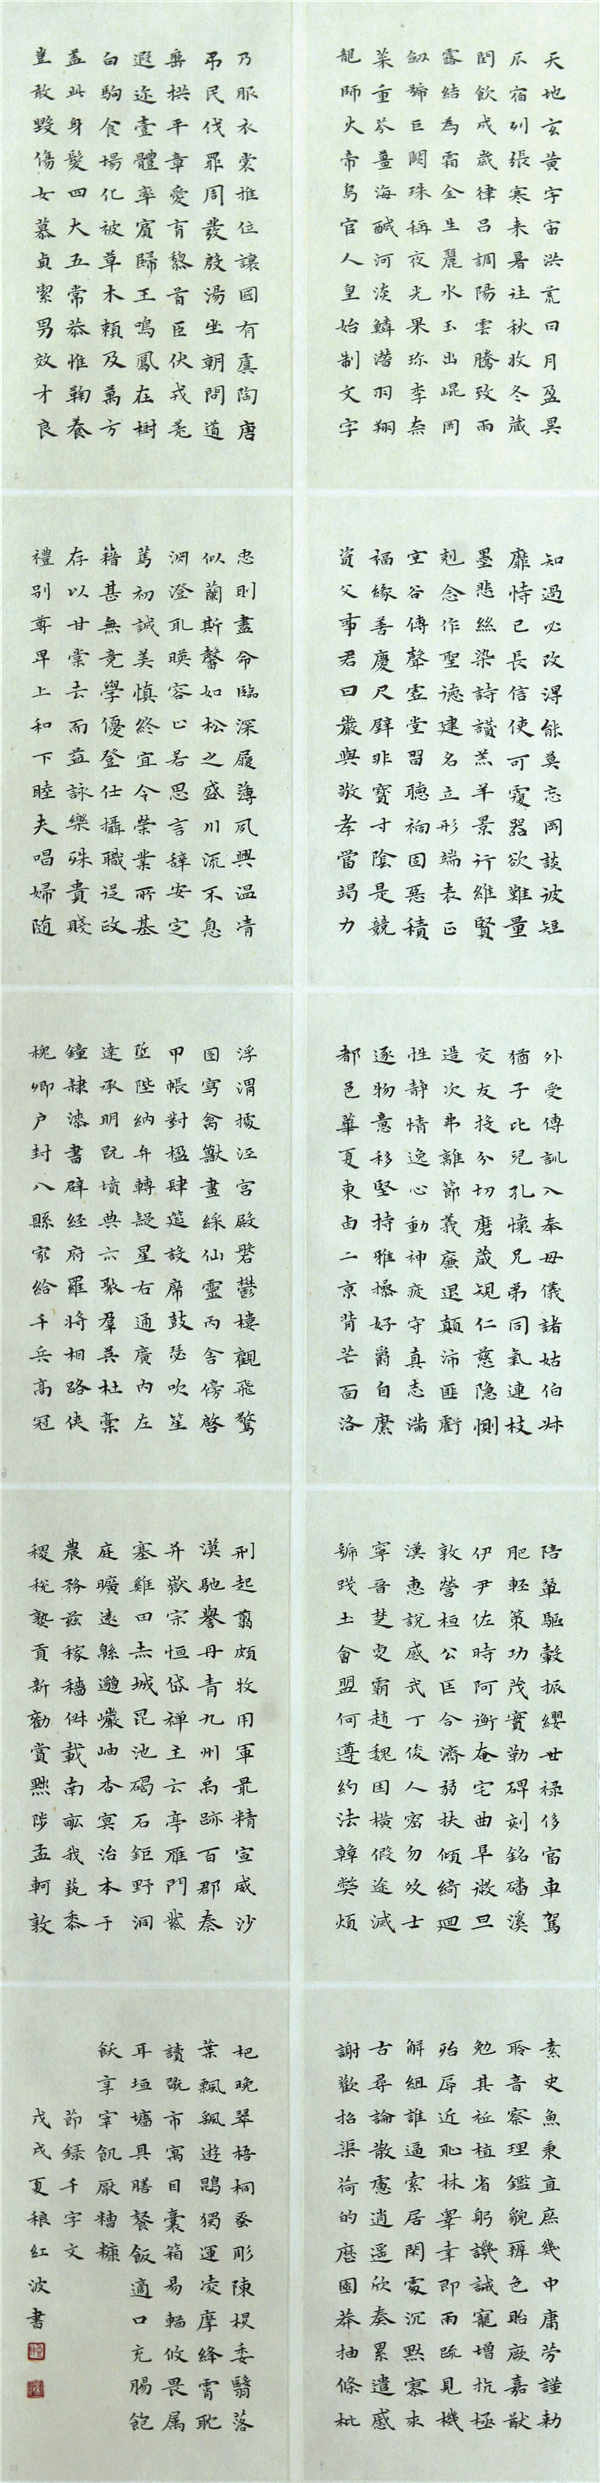 天地玄黃宇宙洪荒日月盈昃
辰宿列張寒来暑往秋收冬藏
閏餘成歲律呂調陽雲騰致雨
露結為霜金生麗水玉出崐岡
劔號巨闕珠稱夜光果珍李柰
菜重芥薑海醎河淡鱗潛羽翔
龍師火帝鳥官人皇始制文字
乃服衣裳推位讓國有虞陶唐
弔民伐罪周發殷湯坐朝問道
垂拱平章愛育黎首臣伏戎羌
遐迩壹體率賓歸王鳴鳳在樹
白駒食場化被草木賴及萬方
蓋此身髮四大五常恭惟鞠養
豈敢毀傷女慕貞絜男效才良
知過必改得能莫忘罔談彼短
靡恃己長信使可覆器欲難量
墨悲絲染詩讚羔羊景行維賢
剋念作聖德建名立形端表正
空谷傳聲虛堂習聽禍因惡積
福緣善慶尺璧非寶寸陰是競
資父事君曰嚴與敬孝當竭力
忠則盡命臨深履薄夙興溫凊
似蘭斯馨如松之盛川流不息
淵澄取暎容止若思言辭安定
篤初誠美慎終宜令榮業所基
籍甚無竟學優登仕攝職從政
存以甘棠去而益詠樂殊貴賤
禮別尊卑上和下睦夫唱婦随
外受傅訓入奉母儀諸姑伯叔
猶子比兒孔懷兄弟同氣連枝
交友投分切磨箴規仁慈隱惻
造次弗離節義廉退顛沛匪虧
性靜情逸心動神疲守真志滿
逐物意移堅持雅操好爵自縻
都邑華夏東西二京背芒面洛
浮渭據涇宮殿磐鬱樓觀飛驚
圖寫禽獸畫綵仙靈丙舍傍啓
甲帳對楹肆筵設席鼓瑟吹笙
陞陛納弁轉疑星右通廣內左
達承明既墳典亦聚羣英杜稾
鐘隸漆書壁經府羅將相路俠
槐卿戶封八縣家給千兵高冠
陪輦驅轂振纓世祿侈富車駕
肥輕策功茂實勒碑刻銘磻溪
伊尹佐時阿衡奄宅曲阜微旦
孰營桓公匡合濟弱扶傾綺迴
漢惠說感武丁俊乂密勿多士
寧晉楚更霸趙魏困橫假途滅
虢踐土會盟何遵約法韓弊煩
刑起翦頗牧用軍最精宣威沙
漠馳譽丹青九州禹跡百郡秦
并嶽宗恒岱禪主云亭雁門紫
塞雞田赤城昆池碣石鉅野洞
庭曠遠綿邈巖岫杳冥治本于
農務茲稼穡俶載南畝我藝黍
稷稅熟貢新勸賞黜陟孟軻敦
素史魚秉直庶幾中庸勞謹勑
聆音察理鑑貌辨色貽厥嘉猷
勉其祗植省躬譏誡寵增抗極
殆辱近恥林皋幸即兩疏見機
解組誰逼索居閑處沉默寥求
古尋論散慮逍遙欣奏累遣慼
謝歡招渠荷的歷園莽抽條枇
杷晚翠梧桐蚤彫陳根委翳落
葉飄颻遊鵾獨運凌摩絳霄耽
讀翫市寓目囊箱易輶攸畏属
耳垣墻具膳餐飯適口充腸飽
飫享宰飢厭糟糠
節錄千字文
戊戌夏红波書